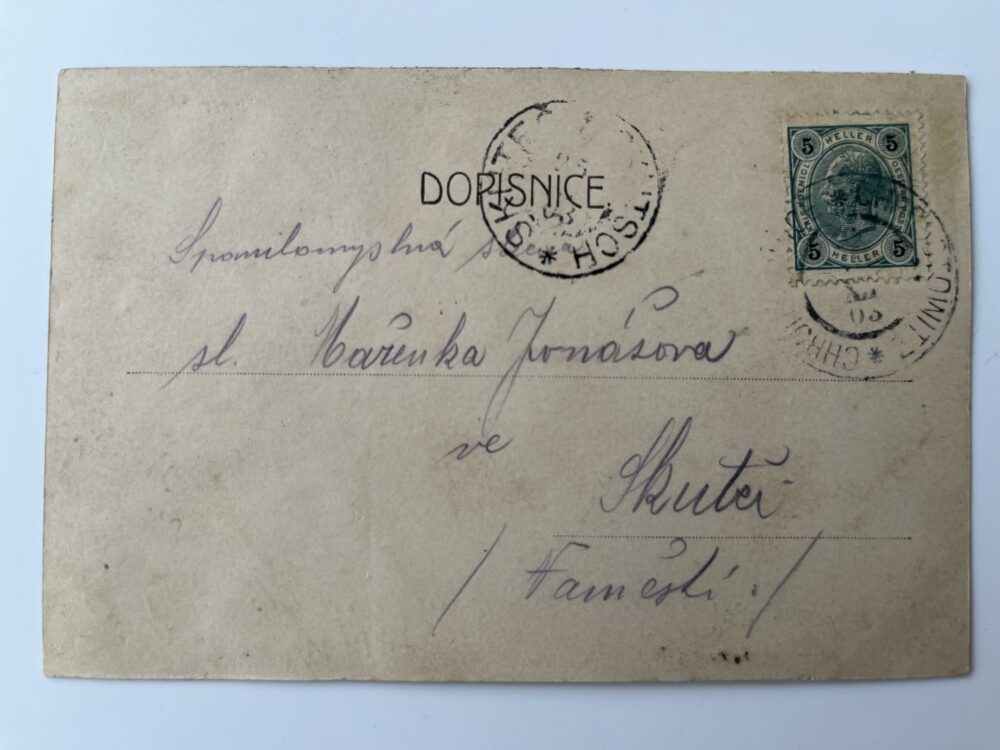 DOPISNICE.
SKUTEČ SKUTSCH
5 HELLER 5
5 HELLER 5
03
Spanilomyslná slečna
sl. Mařenka Jonášova
ve
Skutči
/ Faměstí ./